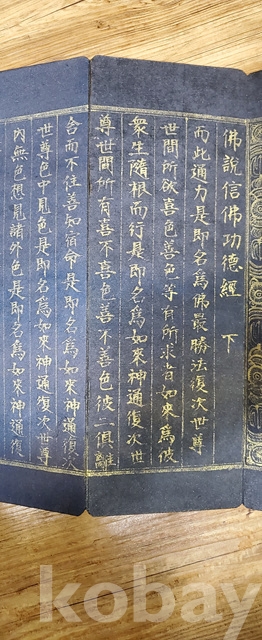 佛說信佛功德經 下
而此通力是即名為佛最勝法復次世尊
世間所欲喜色善色等有所求者如來為彼
眾生隨根而行是即名為如來神通復次世
尊世間所有喜不喜色善不善色彼二俱離
舍而不住喜知宿命是即名為如來神通復次
世尊色中見色是即名為如來神通復次世尊
內無色想見諸外色是即名為如來神通復
kobay